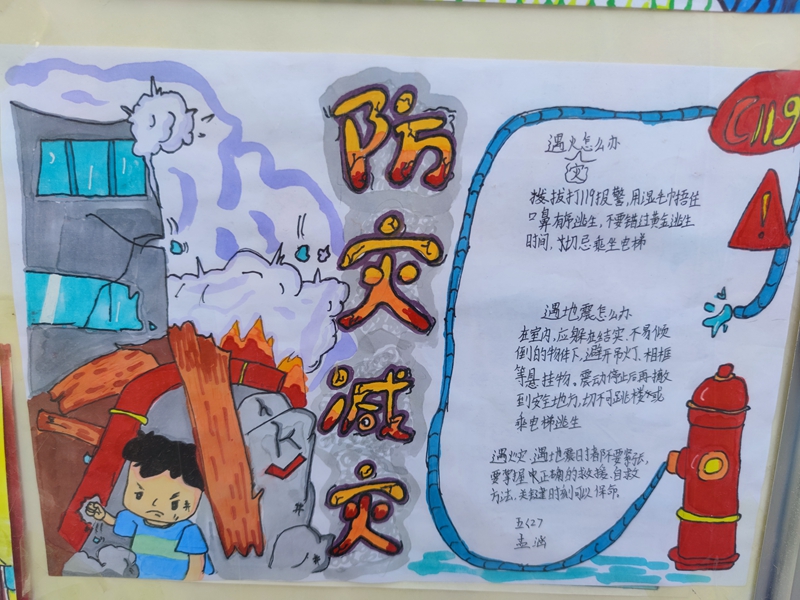 防灾减灾
119
!
遇火怎么办
灾
拨打119报警,用湿毛巾捂住
口鼻有序逃生,不要错过黄金逃生
时间,切忌乘坐电梯
遇地震怎么办
在室内,应躲在结实、不易倾
倒的物体下,避开吊灯、相框
等悬挂物。震动停止后再撤
到安全地方,切不可跳楼或
乘电梯逃生
遇火灾、遇地震时都不要紧张,
要掌握正确的救援、自救
方法,关键时刻可以保命。
五(2)
孟涵